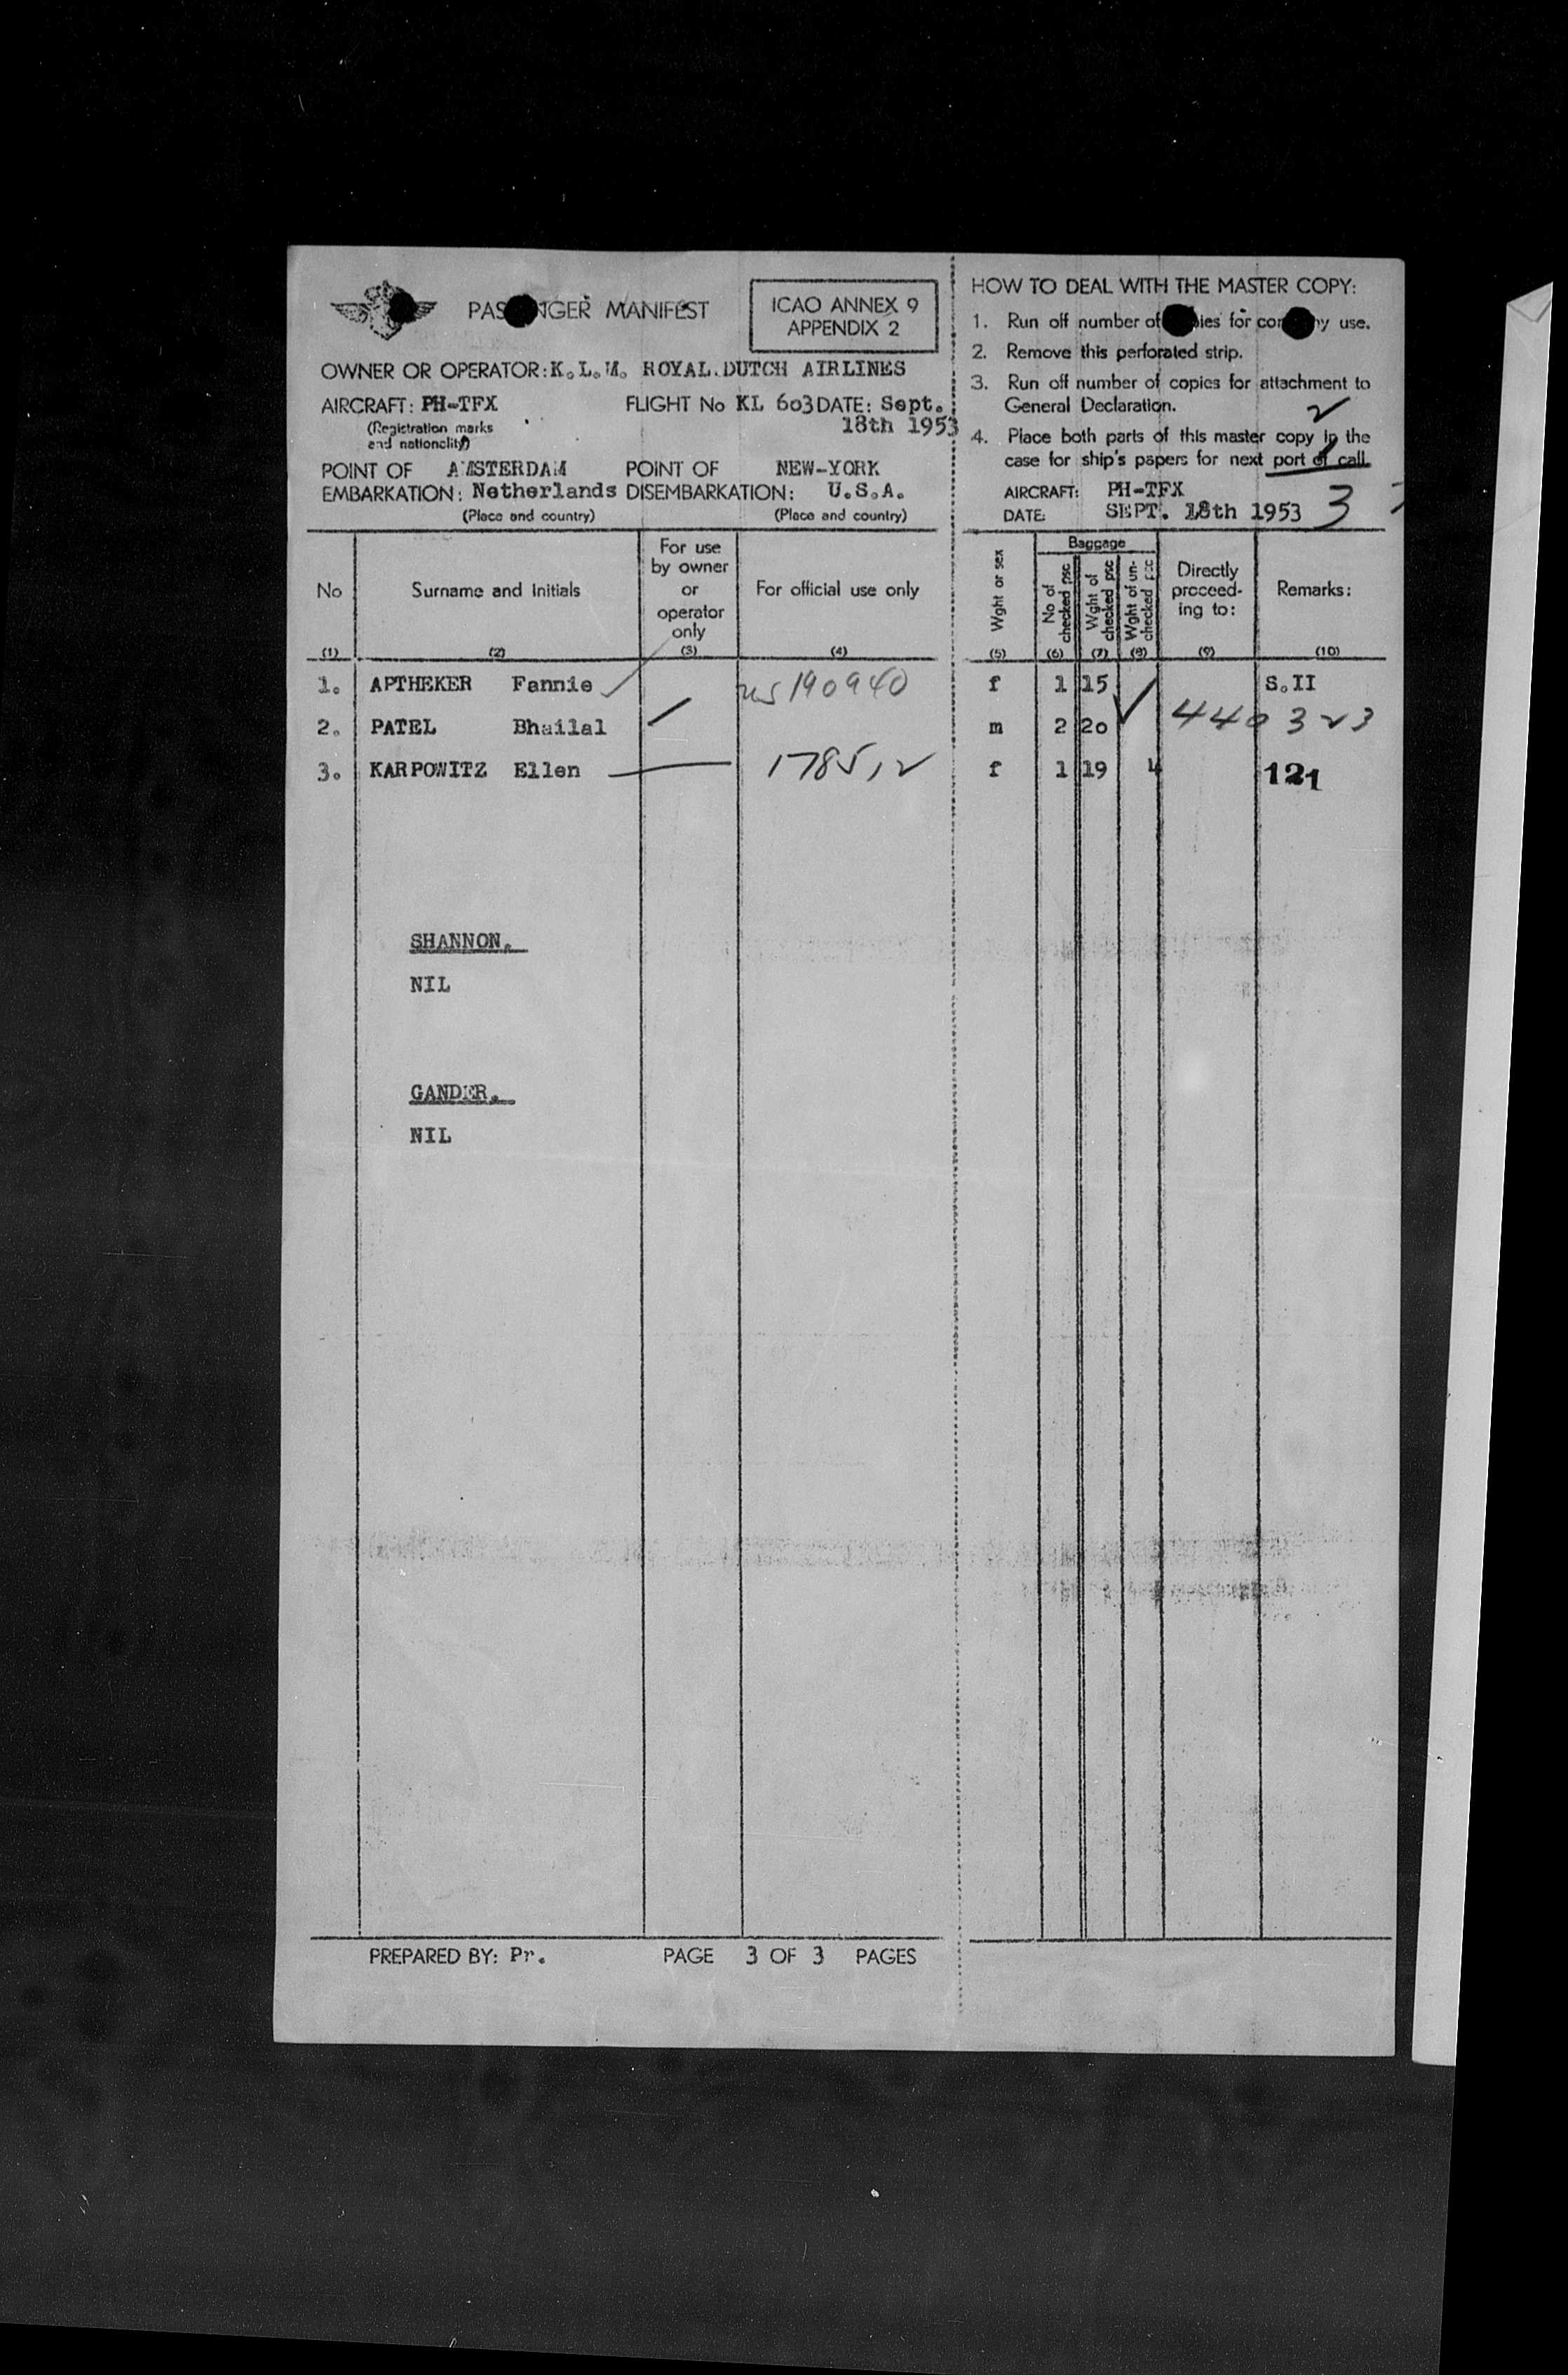 PASNGER MANIFEST
ICAO ANNEX 9
APPENDIX 2
OWNER OR OPERATOR: K.L.M. ROYAL.DUTCH AIRLINES
AIRCRAFT: PH-TFX FLIGHT No KL 603 DATE: Sept.
(Registration marks
and nationality)
18th 1953
POINT OF AMSTERDAM POINT OF NEW-YORK
EMBARKATION: Netherlands DISEMBARKATION: U.S.A.
(Place and country) (Place and country)
No
Surname and Initials
For use
by owner
or
operator
only
For official use only
(1) (2) (3) (4)
1. APTHEKER Fannie 190940
2. PATEL Bhailal
3. KARPOWITZ Ellen
SHANNON.
NIL
GANDER.
NIL
PREPARED BY: Pr. PAGE 3 OF 3 PAGES
HOW TO DEAL WITH THE MASTER COPY:
1. Run off number of for use.
2. Remove this perforated strip.
3. Run off number of copies for attachment to
General Declaration.
4. Place both parts of this master copy in the
case for ship's papers for next port of call
AIRCRAFT: PH-TFX
DATE: SEPT. 18th 1953 3
Wght or sex
Baggage
No of
checked psc
Wght of
checked psc
Wght of un-
checked psc
Directly
proceed-
ing to:
Remarks:
(5) (6) (7) (8) (9) (10)
f 1 15 S.II
m 2 20 440 323
f 1 19 4 121